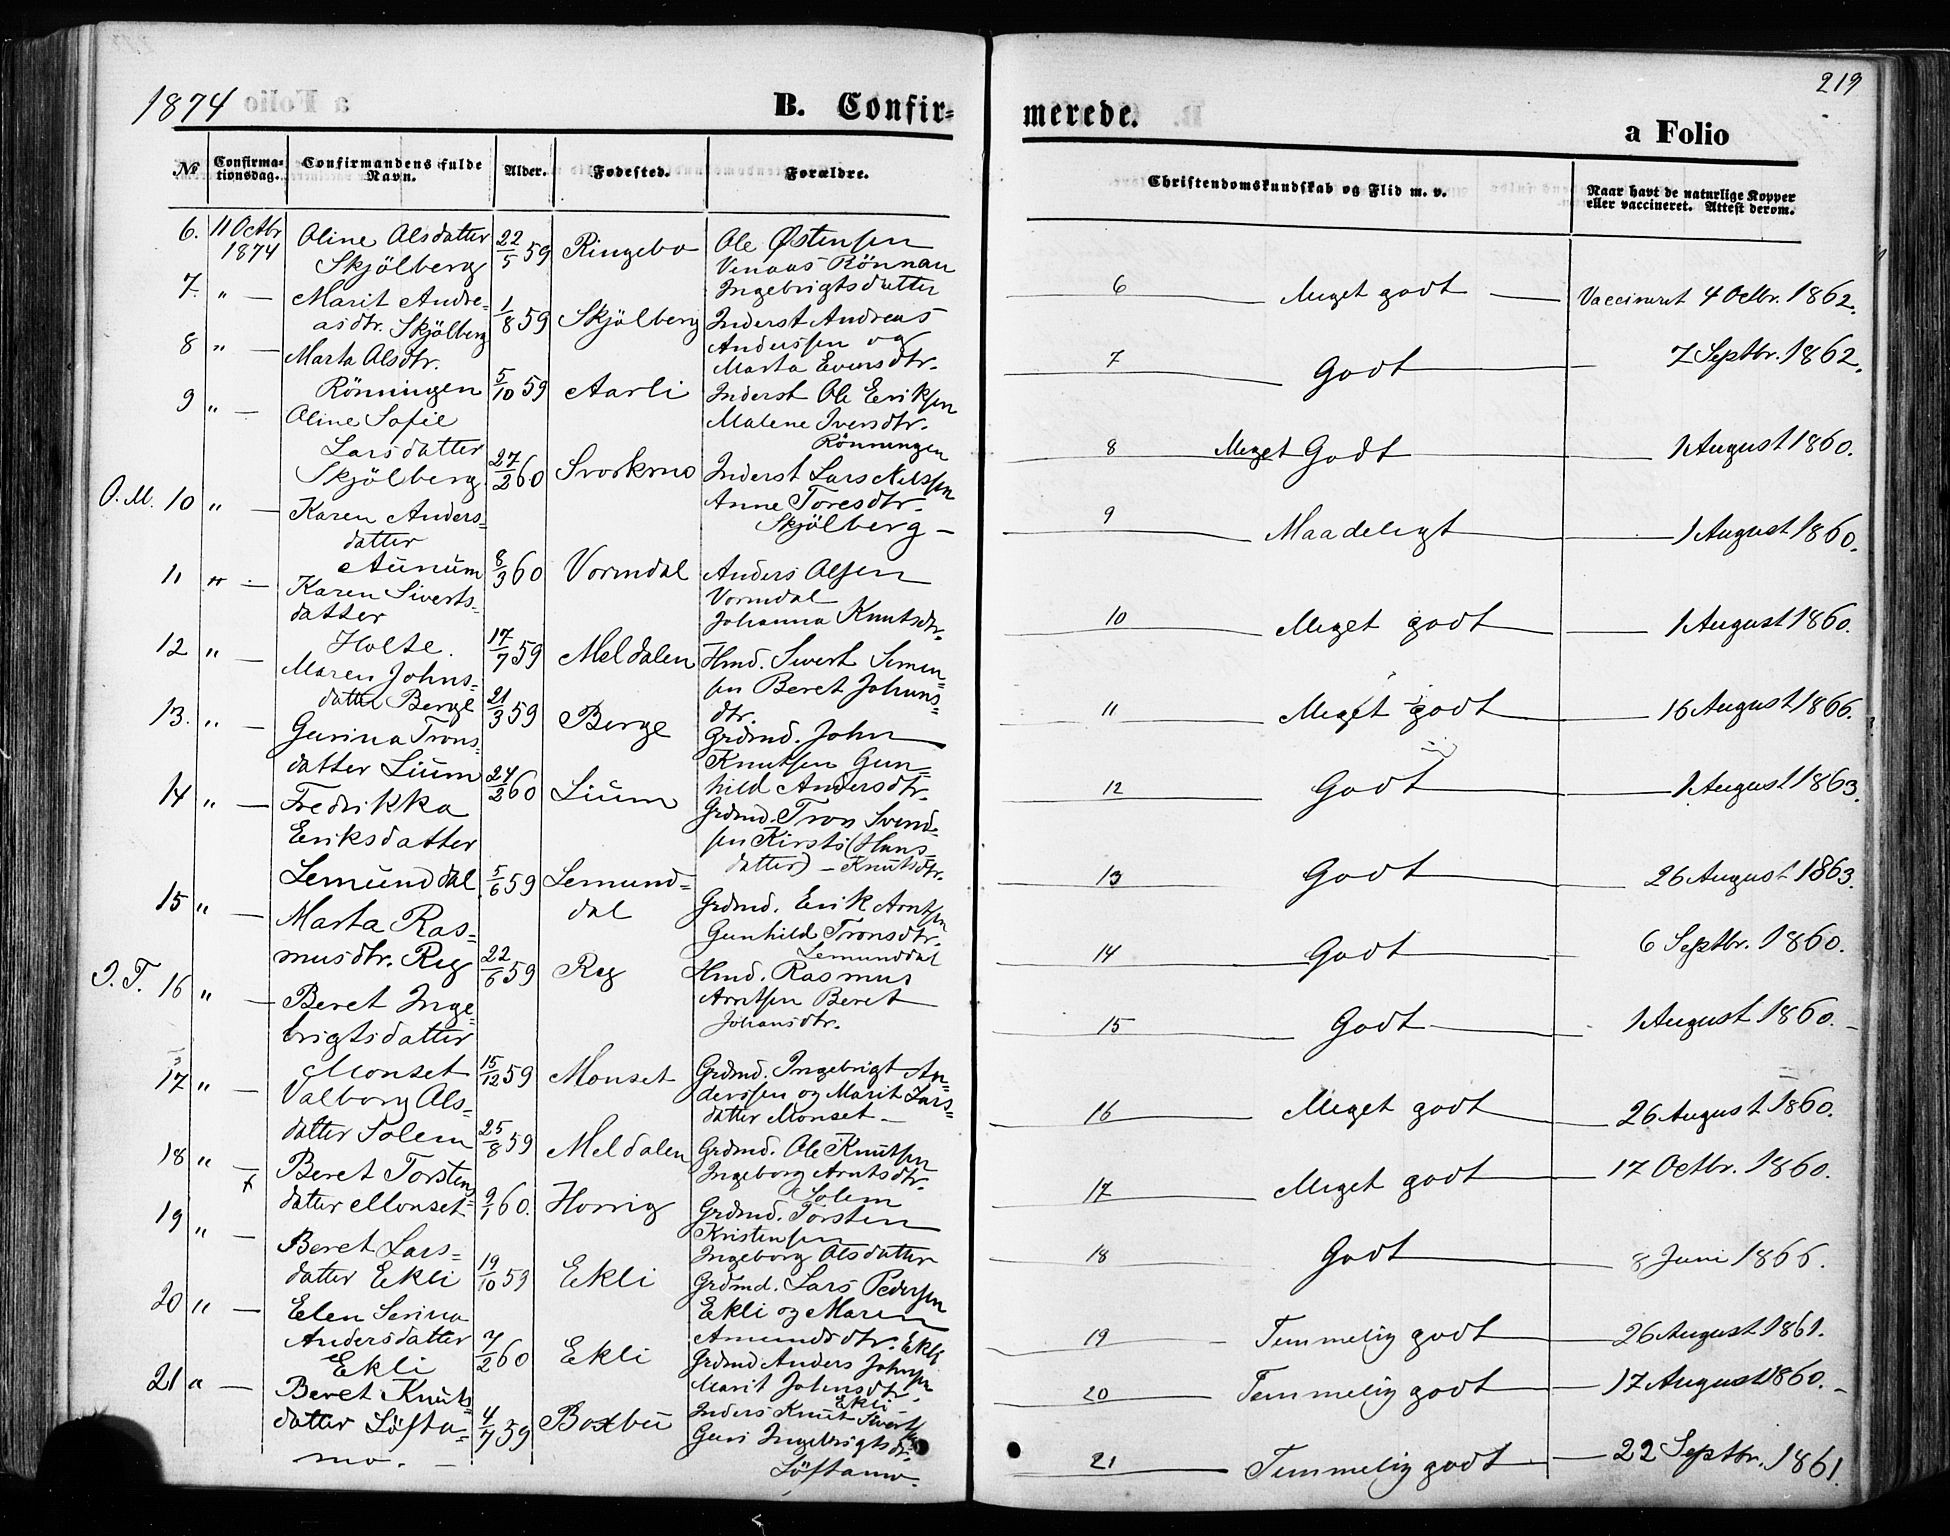 1874
B. Confir-
№
Confirma-
tionsdag.
Confirmandens fulde
Navn.
Alder.
Fødested.
Forældre.
6. 11 Octbr 1874
Oline Olsdatter
Skjölberg
22/5 59
Ringebo
Ole Østensen
Venaas Rönnau
Ingebrigtsdatter
7. " —
Marit Andre-
asdtr. Skjölberg
1/8 59
Skjölberg
Inderst Andreas
Anderssen og
Marta Eversdtr.
8 " —
Marta Olsdtr.
Rönningen
5/10 59
Aarli
Inderst Ole Eriksen
Malene Iversdtr.
Rönningen
9 " —
Oline Sofie
Larsdatter
Skjölberg
27/2 60
Svorkmo
Inderst Lars Nilssen
Anne Toresdtr.
Skjölberg —
O. M. 10 " —
Karen Anders-
datter
Aunum
8/3 60
Vormdal
Anders Olsen
Vormdal
Johanna Knutsdtr.
11 " —
Karen Siverts-
datter
Holte.
17/7 59
Meldalen
Hmd. Sivert Simen-
sen Beret Johans-
dtr.
12 " —
Maren Johns-
datter Berge
21/3 59
Berge
Grdmd. John
Knutsen Gun-
hild Andersdtr.
13. " —
Gurina Trons-
datter Lium
24/2 60
Lium
Grdmd. Tron Svend-
sen Kirsti (Hans-
datter) — Knutsdtr.
14 " —
Fredrikka
Eriksdatter
Lemunddal
5/6 59
Lemund-
dal
Grdmd. Erik Arntsen
Gunhild Tronsdtr.
Lemunddal
15 " —
Marta Ras-
musdtr. Reg
22/6 59
Reg
Hmd. Rasmus
Arntsen Beret
Johansdtr.
I. T. 16 " —
Beret Inge-
brigtsdatter
Monset
15/12 59
Monset
Grdmd. Ingebrigt An-
derssen og Marit Lars-
datter Monset —
17 " —
Valborg Ols-
datter Solem
25/8 59
Meldalen
Grdmd. Ole Knutsen
Ingeborg Arntsdtr.
Solem
18 " —
Beret Torstens-
datter Monset
9/1 60.
Horrig
Grdmd. Torsten
Kristensen
Ingeborg Olsdatter
19 " —
Beret Lars-
datter Ekli
19/10 59
Ekli
Grdmd. Lars Pedersen
Ekli og Maren
Amundsdtr. Ekli
20 " —
Elen Serina
Andersdatter
Ekli
7/2 60
Ekli
Grdmd Anders Johnsen
Marit Johnsdtr.
Ekli
21 " —
Beret Knuts-
datter Löfta-
mo. —
4/7 59
Boxbu
Inders Knut Sivertsen
Guri Ingebrigtsdtr.
Löftamo.
219
merede.
a Folio
Christendomskundskab og Flid m. v.
Naar havt de naturlige Kopper
eller vaccineret. Attest derom.
6 — Meget godt — Vaccineret 4 Octbr. 1862.
7 — Godt — 7 Septbr. 1862.
8 Meget Godt — 1 August 1860.
9 — Maadeligt — 1 August 1860.
10 — Meget godt — 1 August 1860.
11 — Meget godt — 16 August 1866.
12 — Godt — 1 August 1863.
13 — Godt — 26 August 1863.
14 — Godt — 6 Septbr. 1860.
15 — Godt — 1 August 1860. —
16 — Meget godt — 26 August 1860.
17 — Meget godt — 17 Octbr. 1860.
18 — Godt — 8 Juni 1866.
19 — Temmelig godt — 26 August 1861.
20 — Temmelig godt — 17 August 1860. —
21 — Temmelig godt — 22 Septbr. 1861.